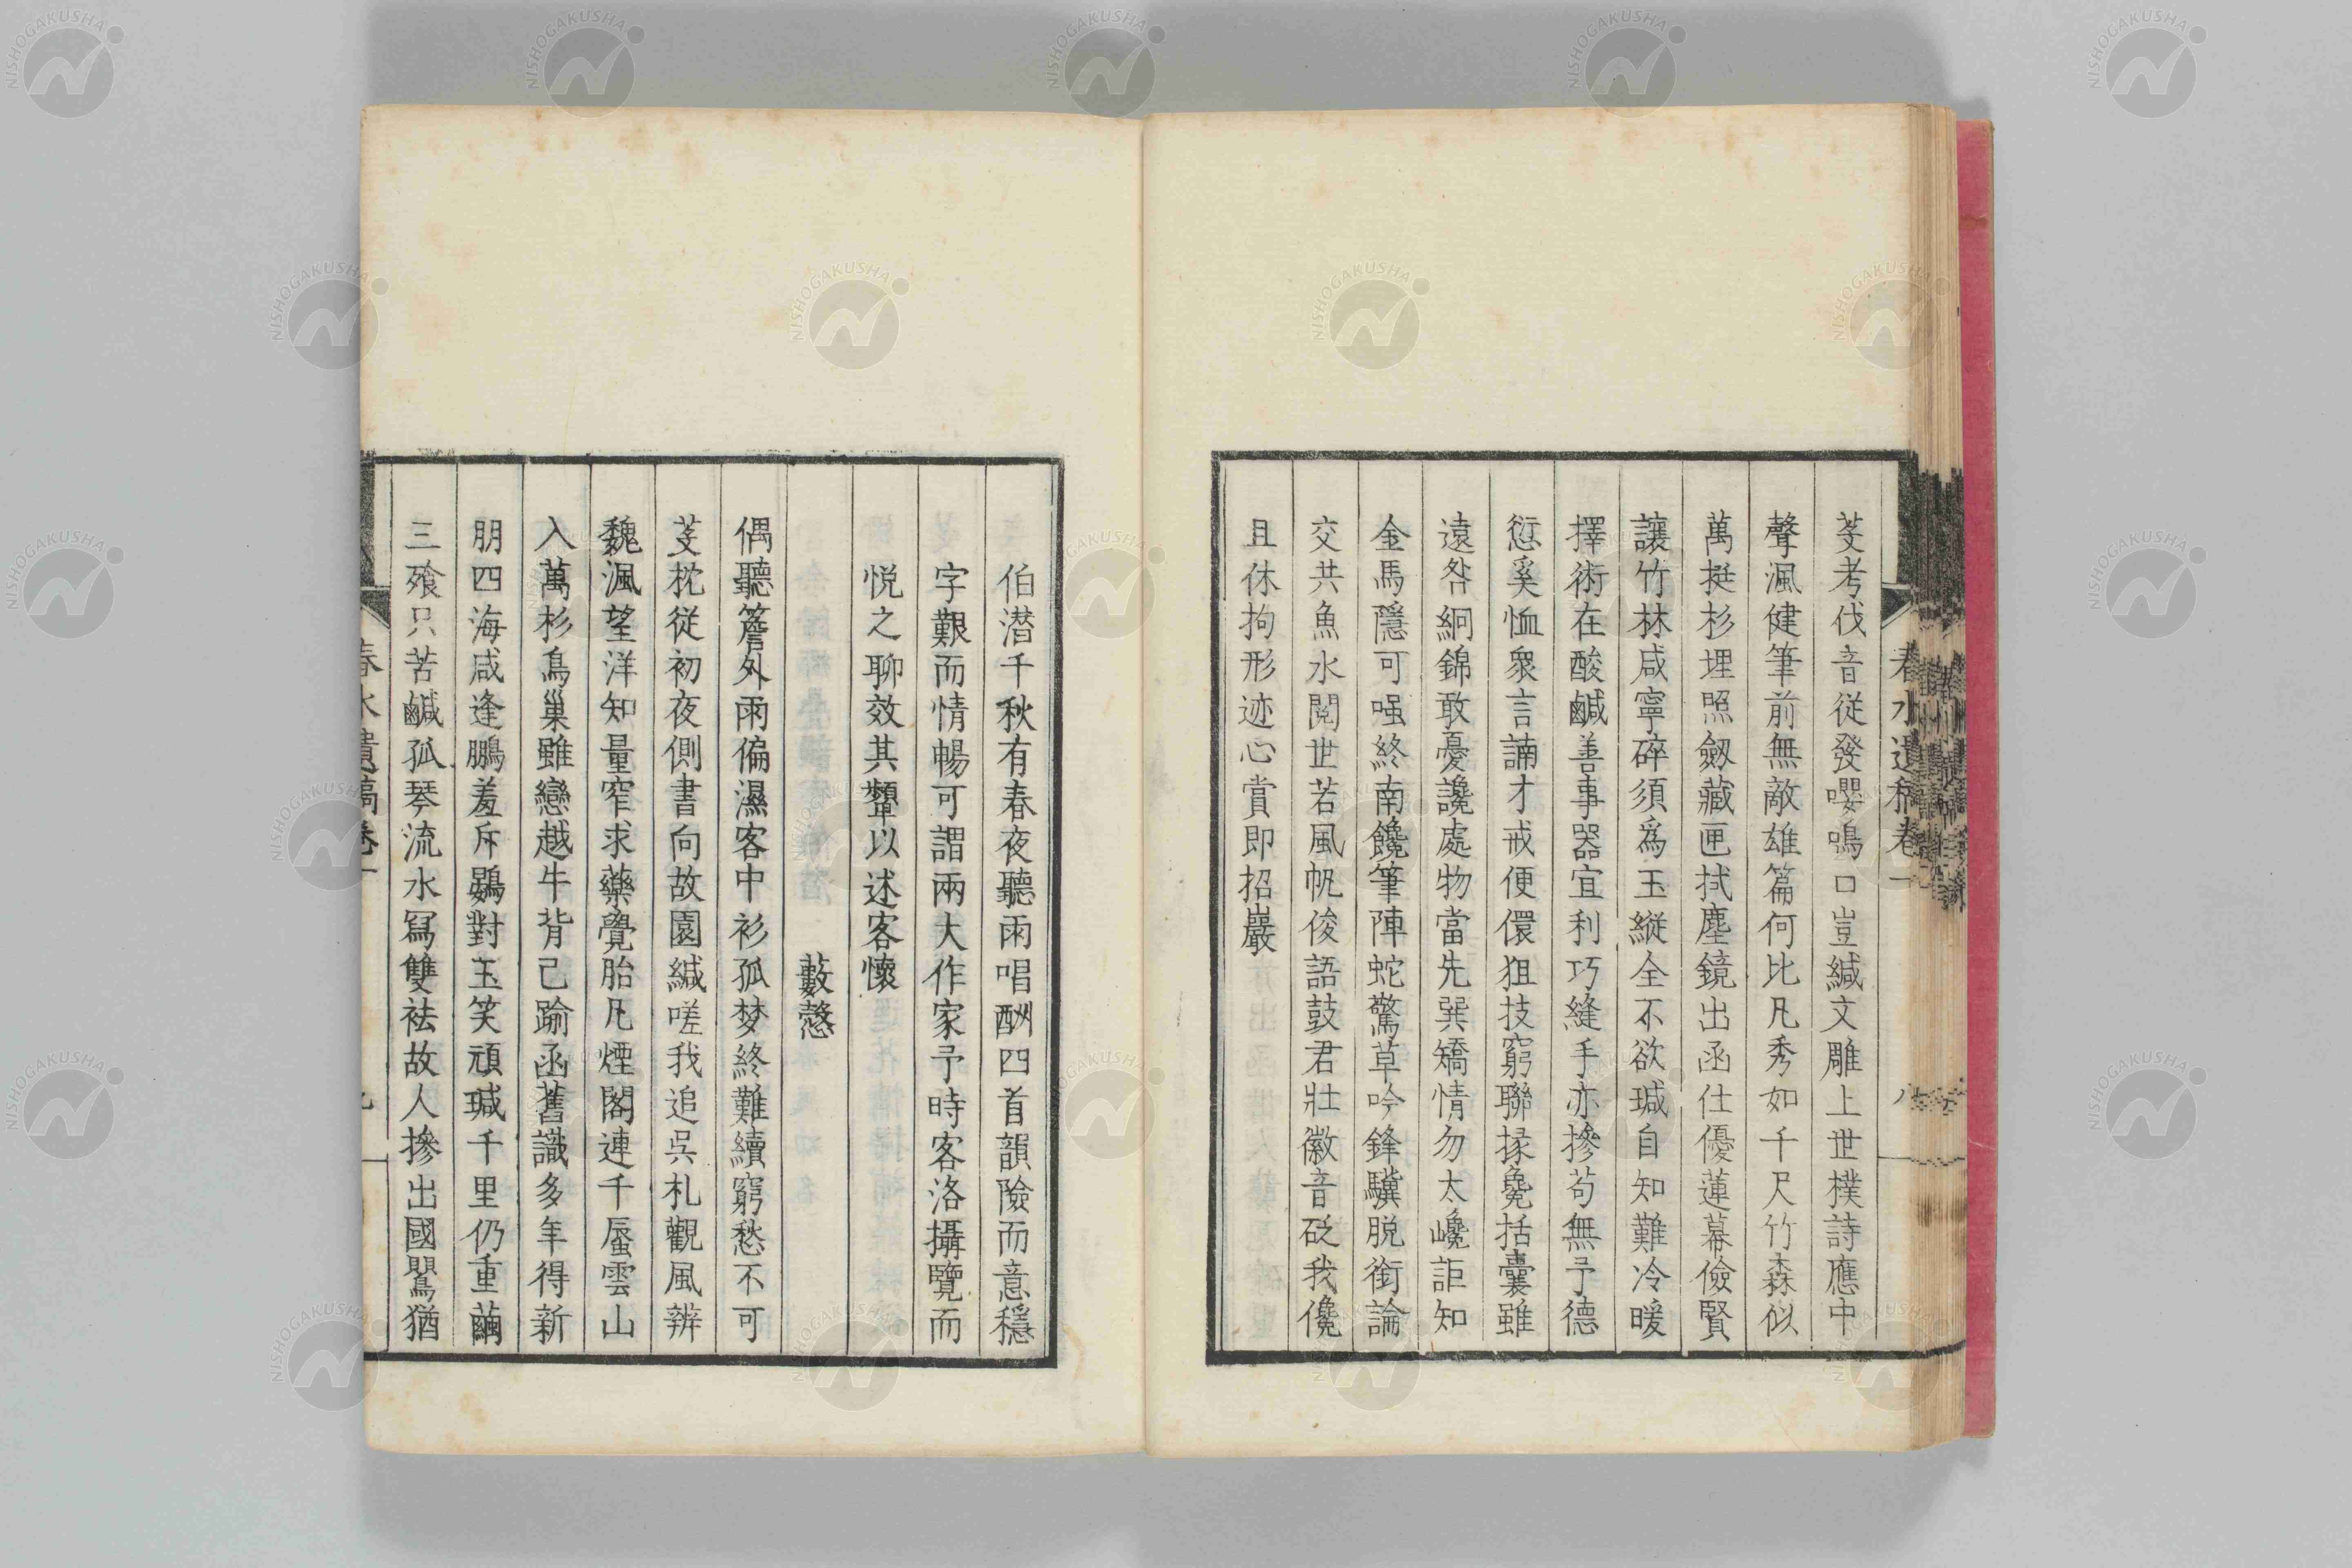 春水遺稿卷一
八
芟考伐音從發嚶鳴口豈緘文雕上世樸詩應中
聲渢健筆前無敵雄篇何比凡秀如千尺竹森似
萬挺杉埋照劔藏匣拭塵鏡出函仕優蓮幕儉賢
讓竹林咸寧碎須爲玉縱全不欲瑊自知難冷暖
擇術在酸鹹善事器宜利巧縫手亦摻苟無予德
愆奚恤衆言諵才戒便儇狙技窮聯掾毚括囊雖
遠咎絅錦敢憂讒處物當先巽矯情勿太巉詎知
金馬隱可强終南饞筆陣蛇驚草吟鋒驥脱銜論
交共魚水閱世若風帆俊語鼓君壯徽音砭我儳
且休拘形迹心賞即招巖
伯潜千秋有春夜聽雨唱酬四首韻險而意穩
字艱而情暢可謂兩大作家予時客洛攝覽而
悦之聊效其顰以述客懷
藪愨
偶聽簷外雨偏濕客中衫孤梦終難續窮愁不可
芟枕從初夜側書向故園緘嗟我追呉札觀風辨
魏渢望洋知量窄求藥覺胎凡煙閣連千蜃雲山
入萬杉鳥巢雖戀越牛背已踰函舊識多年得新
朋四海咸逢鵬羞斥鷃對玉笑頑瑊千里仍重繭
三飱只苦鹹孤琴流水寫雙袪故人摻出國鸎猶
春水遺稿卷一
九
NISHOGAKUSHA